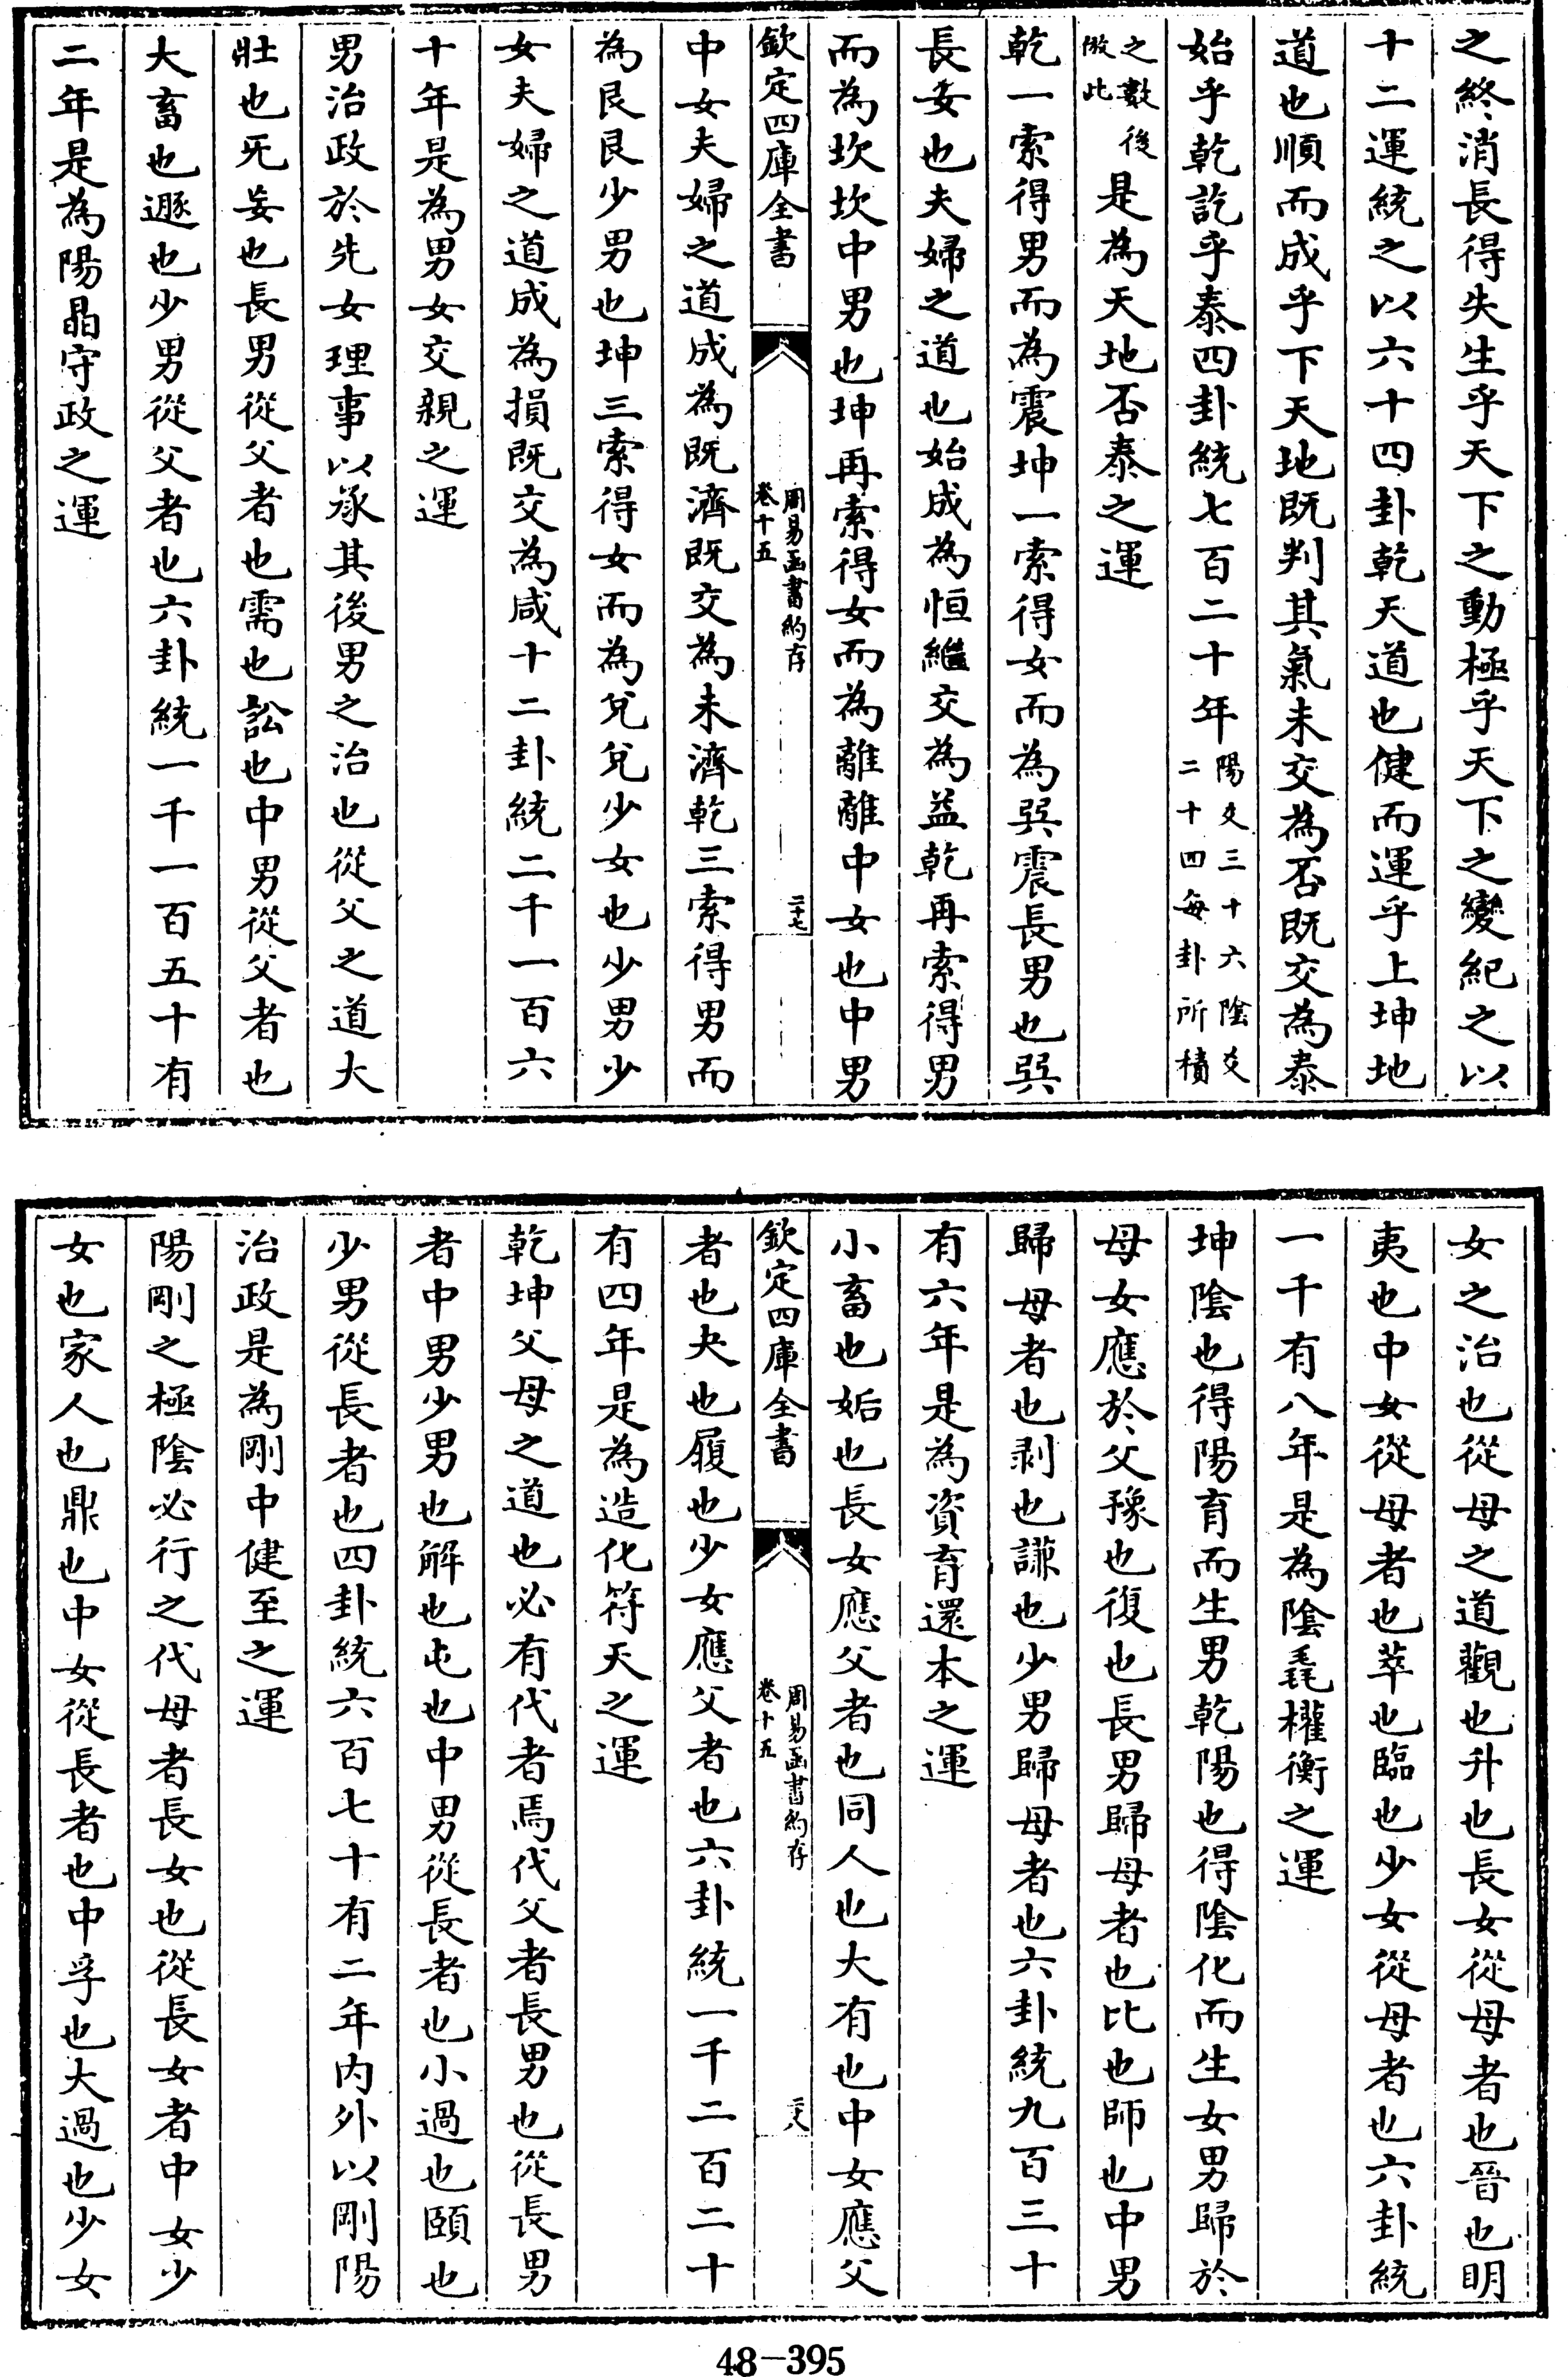 之終消長得失生乎天下之動極乎天下之變紀之以
十二運統之以六十四卦乾天道也健而運乎上坤地
道也順而成乎下天地既判其氣未交為否既交為泰
始乎乾訖乎泰四卦統七百二十年陽爻三十六陰爻
二十四每卦所積
之數後
倣此
是為天地否泰之運
乾一索得男而為震坤一索得女而為巽震長男也巽
長女也夫婦之道也始成為恒繼交為益乾再索得男
而為坎坎中男也坤再索得女而為離離中女也中男
欽定四庫全書
周易函書約存
卷十五
二十七
中女夫婦之道成為既濟既交為未濟乾三索得男而
為艮艮少男也坤三索得女而為兌兌少女也少男少
女夫婦之道成為損既交為咸十二卦統二千一百六
十年是為男女交親之運
男治政於先女理事以承其後男之治也從父之道大
壯也无妄也長男從父者也需也訟也中男從父者也
大畜也遯也少男從父者也六卦統一千一百五十有
二年是為陽晶守政之運
女之治也從母之道觀也升也長女從母者也晉也明
夷也中女從母者也萃也臨也少女從母者也六卦統
一千有八年是為陰毳權衡之運
坤陰也得陽育而生男乾陽也得陰化而生女男歸於
母女應於父豫也復也長男歸母者也比也師也中男
歸母者也剥也謙也少男歸母者也六卦統九百三十
有六年是為資育還本之運
小畜也姤也長女應父者也同人也大有也中女應父
欽定四庫全書
周易函書約存
卷十五
二十八
者也夬也履也少女應父者也六卦統一千二百二十
有四年是為造化符天之運
乾坤父母之道也必有代者焉代父者長男也從長男
者中男少男也解也屯也中男從長者也小過也頤也
少男從長者也四卦統六百七十有二年內外以剛陽
治政是為剛中健至之運
陽剛之極陰必行之代母者長女也從長女者中女少
女也家人也鼎也中女從長者也中孚也大過也少女
48-395